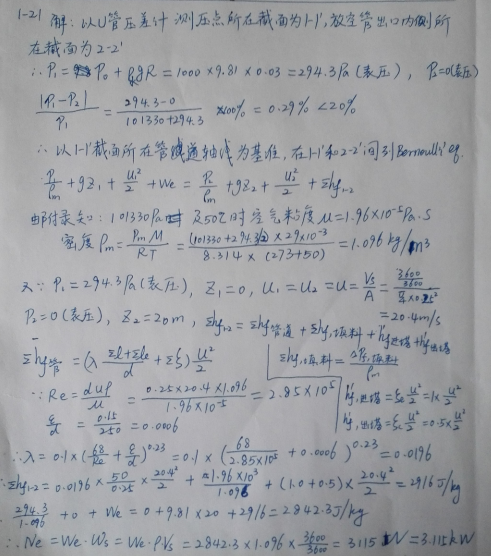 1-21 解：以U管压差计测压点所在截面为1-1'，放空管出口内侧所
在截面为2-2'
∴P₁ = P₀ + ρgR = 1000×9.81×0.03 = 294.3Pa(表压)， P₂=0(表压)
|P₁-P₂|/P₁ = (294.3-0)/(101330+294.3) ×100% = 0.29% <20%
∴ 以1-1'截面所在管道轴线为基准，在1-1'和2-2'间列Bernoulli's eq.
P₁/ρm + gZ₁ + u₁²/2 + We = P₂/ρm + gZ₂ + u₂²/2 + Σhf₁₋₂
由附录知：101330Pa 及50℃时空气粘度μ=1.96×10⁻⁵Pa.S
密度ρm = PmM/RT = (101330+294.3/2)×29×10⁻³/8.314×(273+50) = 1.096 kg/m³
又∵ P₁=294.3Pa(表压)， Z₁=0， u₁=u₂=u=Vs/A = (3600/3600)/(π/4×0.25²)
P₂=0(表压)， Z₂=20m， Σhf₁₋₂=Σhf管道+Σhf,填料+hf进塔+hf出塔 =20.4m/s
Σhf管=(λ (Σl+Σle)/d +Σξ) u²/2 Σhf,填料=ΔPf,填料/ρm
∵ Re = duρ/μ = 0.25×20.4×1.096/1.96×10⁻⁵ = 2.85×10⁵ hf,进塔=ξ₀ u²/2=1×u²/2
ε/d = 0.15/250 = 0.0006 hf,出塔=ξc u²/2=0.5×u²/2
∴λ=0.1×(68/Re + ε/d)^0.23 = 0.1×(68/2.85×10⁵ + 0.0006)^0.23 = 0.0196
∴Σhf₁₋₂=0.0196×50/0.25×20.4²/2 + 1.96×10³/1.096 + (1.0+0.5)×20.4²/2 = 2916J/kg
294.3/1.096 + 0 + We = 0+9.81×20+2916=2842.3J/kg
∴ Ne=We·Ws=We·ρVs=2842.3×1.096×3600/3600=3115W=3.115kW